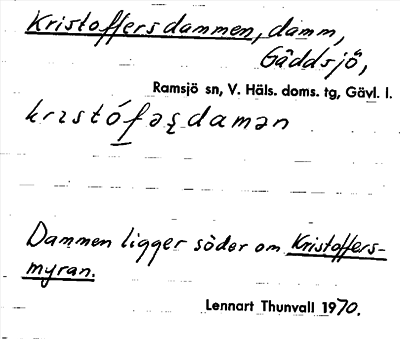 Kristoffersdammen, damm,
Gäddsjö,
Ramsjö sn, V. Häls. doms. tg, Gävl. l.
krıstófəʂdamən
Dammen ligger söder om Kristoffers-
myran.
Lennart Thunvall 1970.